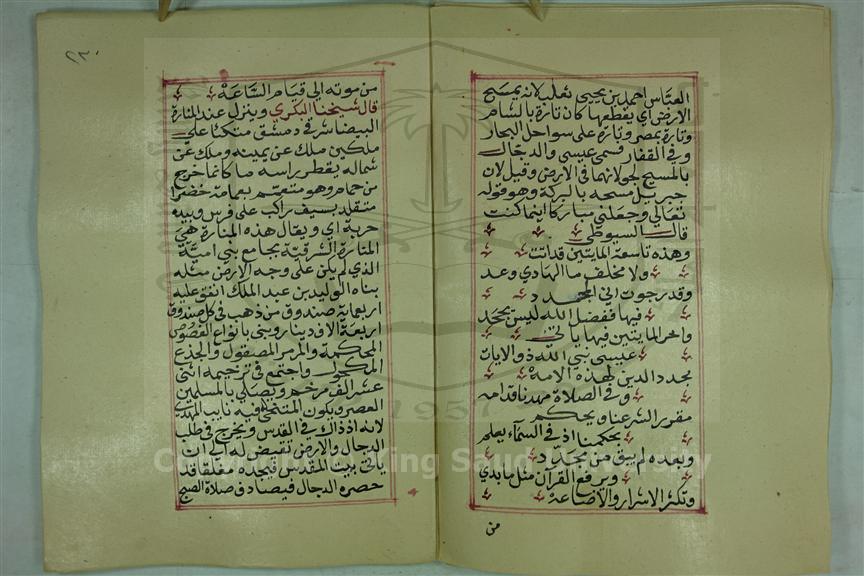 العباس احمد بن يحيى ثعلب لانه يمسح
الارض اي يقطعها كان تارة بالشام
وتارة بمصر وتارة على سواحل البحار
وفي القفار فسمى عيسى والدجال
بالمسيح لجولانهما في الارض وقيل لان
جبريل مسحه بالبركة وهو قوله
تعالى وجعلني مباركا اينما كنت
قال السيوطي
وهذه تاسعة المايتين قد اتت
ولا مخلف ما الهادي وعد
وقد رجوت اني المجدد
فيها ففضل الله ليس يجحد
واخر المايتين فيها ياتي
عيسى نبي الله ذو الايات
يجدد الدين لهذه الامة
وفي الصلاة مهدينا قد امه
مقرر الشرعنا ويحكم
بحكمنا اذ في السماء يعلم
وبعده لم يبق من مجدد
ويرفع القرآن مثل ما بدي
وتكثر الاسرار والاضاعة
من
٢٣٠
من موته الى قيام الساعة
قال شيخنا البكري وينزل عند المنارة
البيضا شرقي دمشق متكئا على
ملكين ملك عن يمينه وملك عن
شماله يقطر راسه ماء كانما خرج
من حمام وهو متعمم بعمامة خضرا
متقلد بسيف راكب على فرس وبيده
حربة اي ويقال هذه المنارة هي
المنارة الشرقية بجامع بني امية
الذي لم يكن على وجه الارض مثله
بناه الوليد بن عبد الملك انفق عليه
اربعماية صندوق من ذهب في كل صندوق
اربعة الاف دينار وبني بانواع الفصوص
المحكمة والمرمر المصقول والجذع
المكحول واجتمع في ترخيمه اثنى
عشر الف مرخم ويصلي بالمسلمين
العصر ويكون المتنحي فيه نايب المهدي
لانه اذ ذاك في القدس ويخرج في طلب
الدجال والارض تقبض له الى ان
ياتي بيت المقدس فيجده مغلقا قد
حصره الدجال فيصادف صلاة الصبح
Copyright © King Saud University
1957